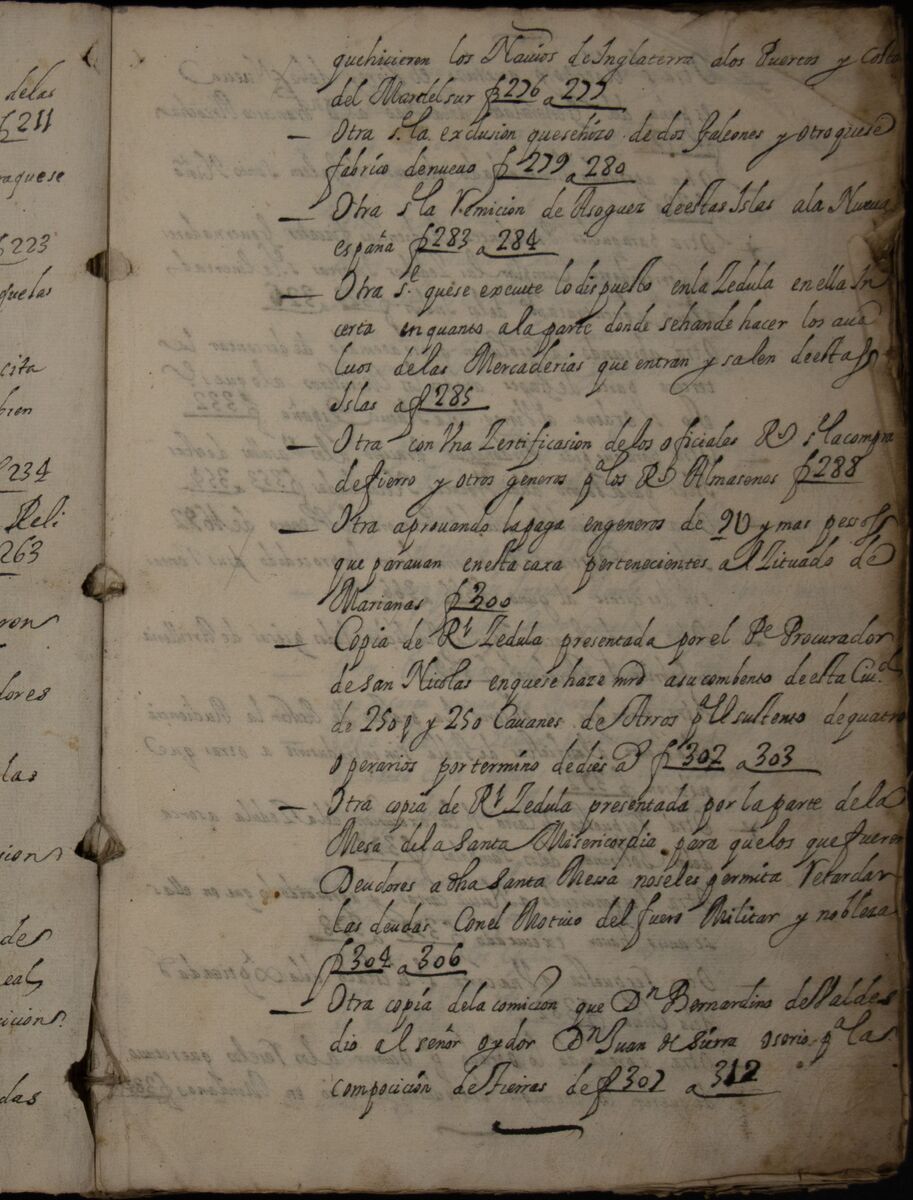 delas
f 211
raquese
f 223
quelas
cita
bien
f 234
Reli
263
ron
dores
las
sion
des
eal
icion.
das
quehicieren los Nauios de Inglaterra alos Puertos y Costa
del Mar del sur f 276 a 277
— Otra s.e la exclusion quesehizo de dos Galeones y otro quese
fabrico denueuo f 279 a 280
— Otra s.e la Remicion de Asoguez deestas Islas ala Nueua
españa f 283 a 284
— Otra s.e quese execute lo dispuesto enla Zedula enella In
certa enquanto ala parte donde sehande hacer los aua
luos delas Mercaderias que entran y salen deestas
Islas a f 285
— Otra con Vna Zertificasion delos oficiales Rs s.e lacompra
de fierro y otros generos pa los Rs Almasenes f 288
— Otra aprouando lapaga engeneros de 2U y mas pessos
que parauan enesta caxa pertenecientes al Zituado de
Marianas f 300
— Copia de Rl Zedula presentada por el Pe Procurador
de san Nicolas enquese haze mrd asu combento deesta Ciud.
de 250 p y 250 Cauanes de Arros pa el sustento dequatro
operarios portermino dedies as f 302 a 303
— Otra copia de Rl Zedula presentada por la parte de la
Mesa dela Santa Misericordia para quelos quefueren
Deudores a dha Santa Messa noseles permita Retardar
las deudas Conel Motiuo del fuero Militar y nobleza
f 304 a 306
— Otra copia dela comicion que Dn Bernardino de Valdes
dio al señor oydor Dn Juan de Sierra osorio pa las
composicion de Tierras de f 307 a 312